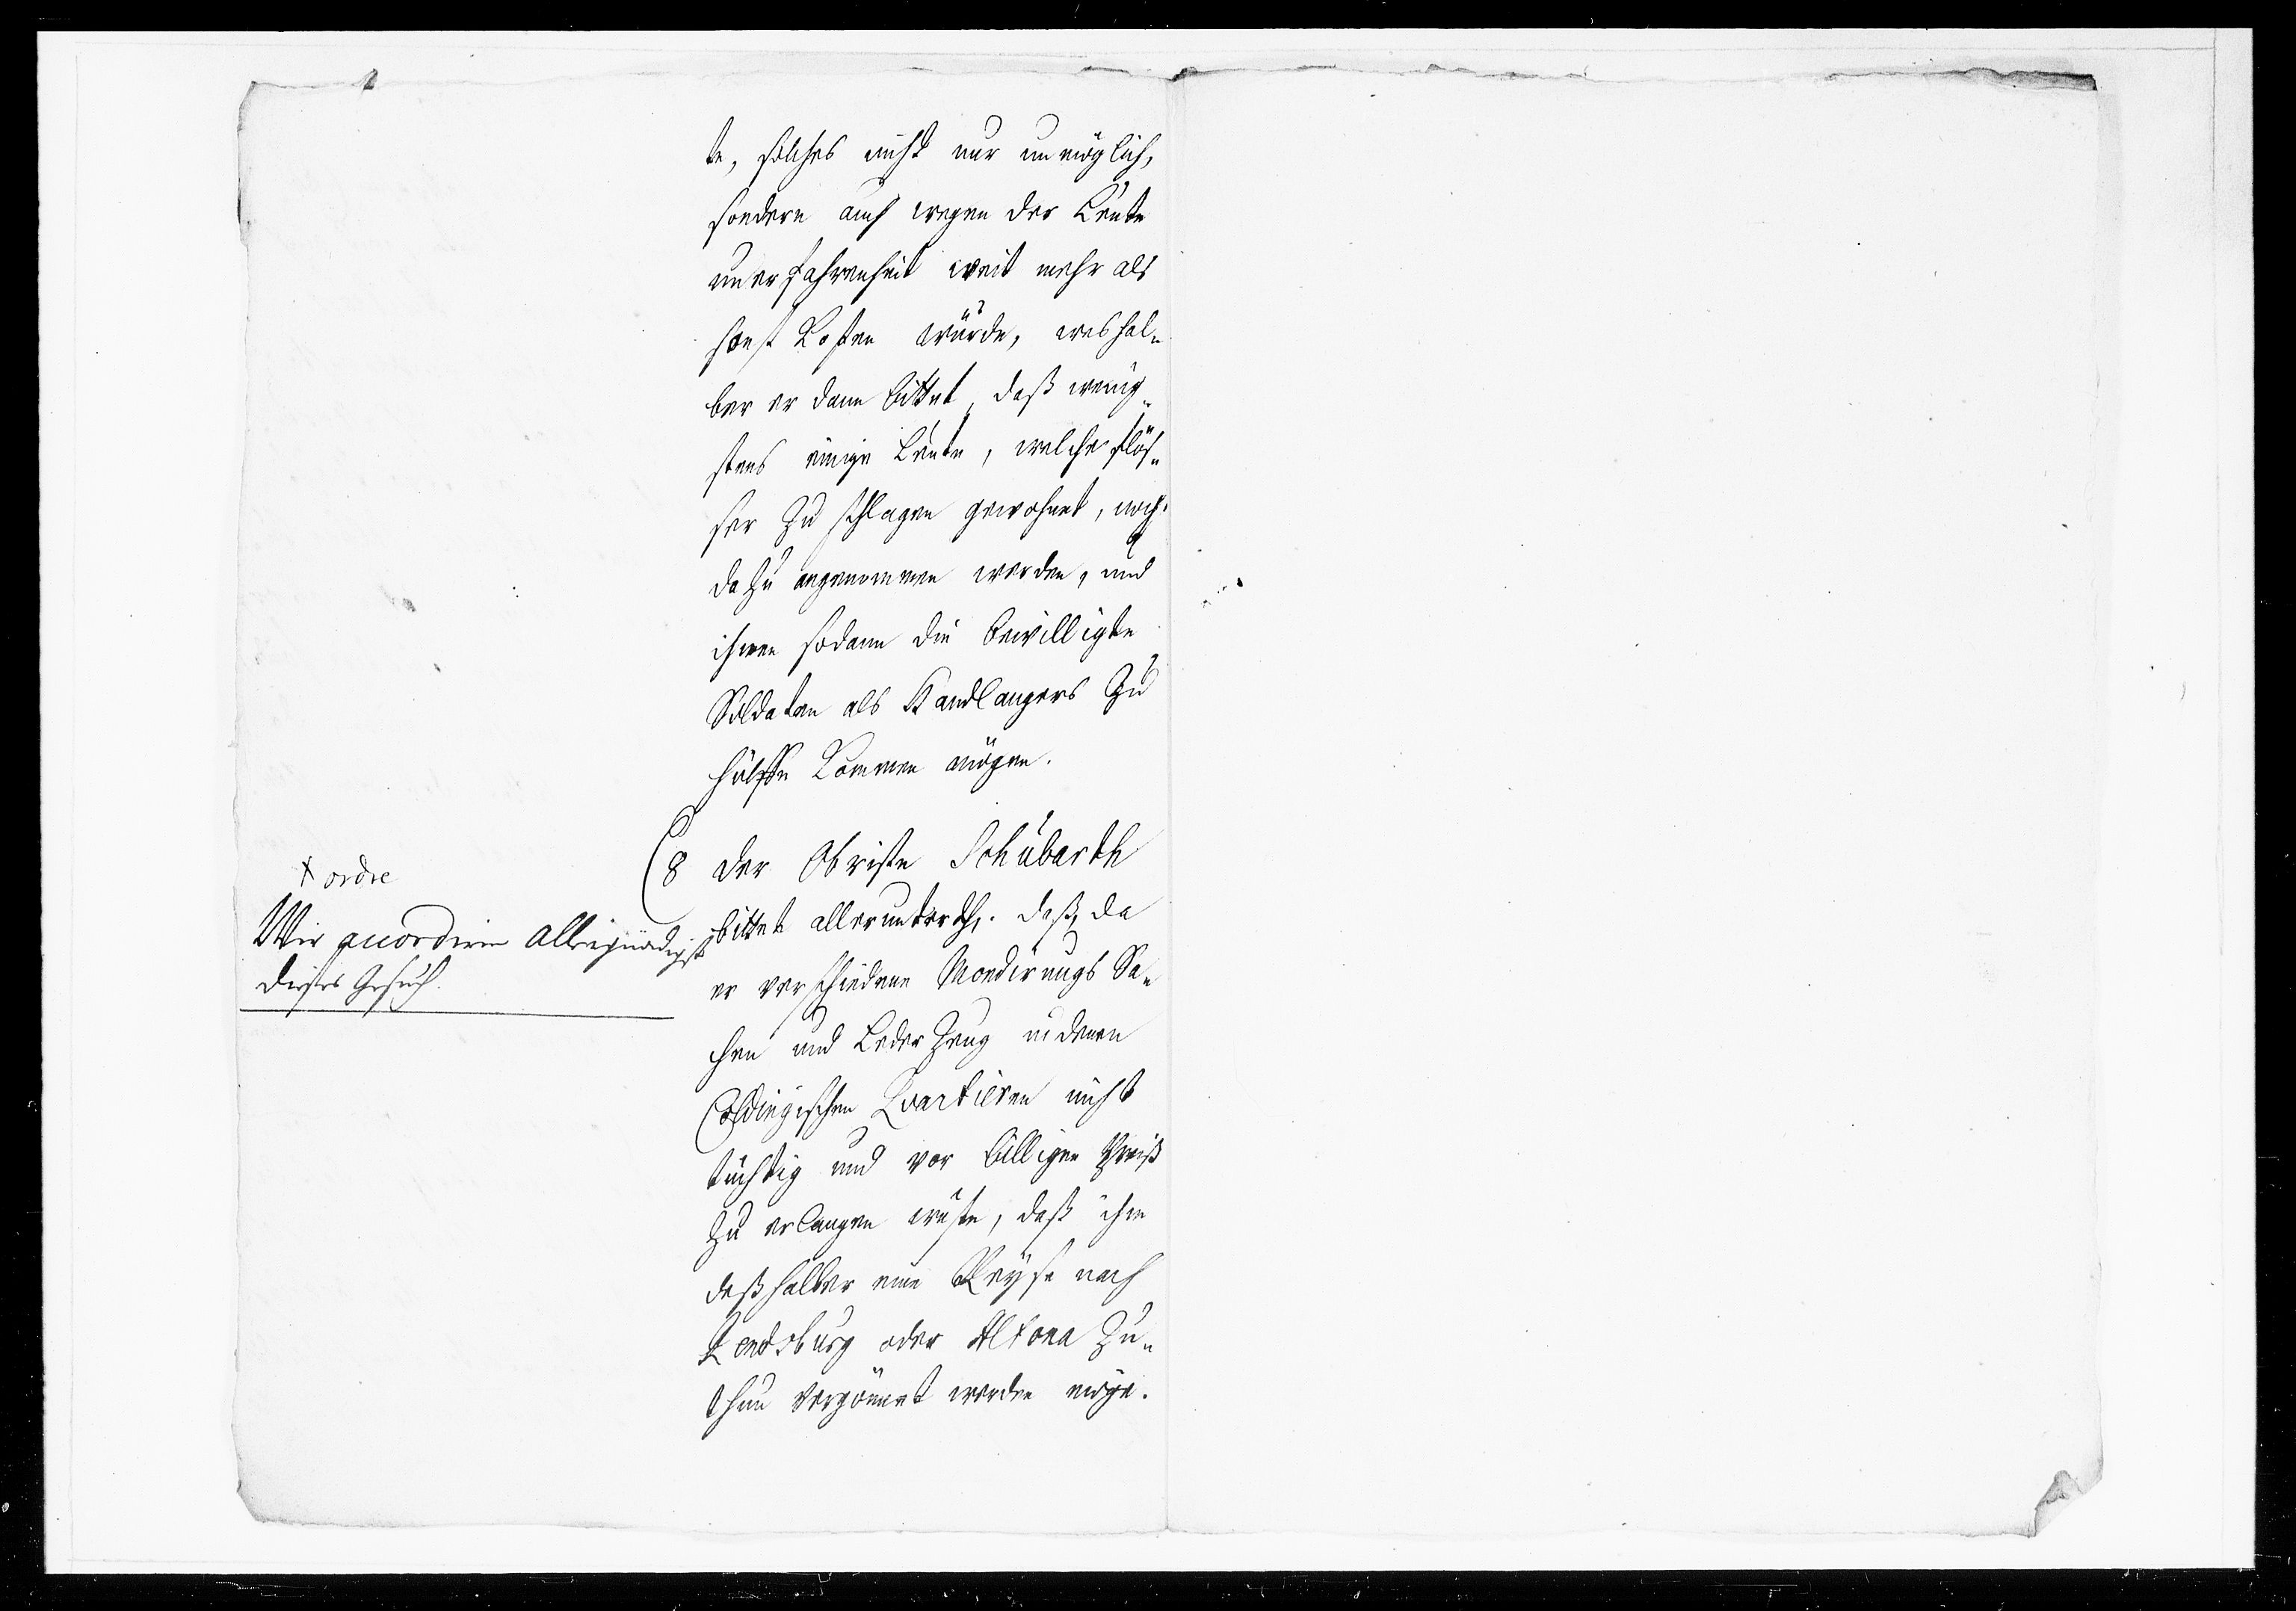 te, solches nicht nur unmöglich,
sondern auch wegen der Leute
unerfahrenheit weit mehr als
sonst Kosten würde, weshal-
ber er dann bittet, daß wenig-
stens einige Leute, welche flös-
ser zu schlagen gewohnet, noch
dazu angenommen werden, und
ihnen sodann die bewilligte
Soldaten als Handlangers zu
hülffe Kommen mögen.
8 der Obriste Schübarth
bittet allerunterth. daß, da
er verschiedene Mondirungs Sa-
chen und Leder Zeug in denen
Coldingischen Quartieren nicht
tüchtig und vor billigen Preiß
zu erlangen wüste, daß ihm
deßhalber eine Reÿse nach
Rendsburg oder Altona zu-
thun vergönnet werden möge.
+ ordre
Wir accordiren allergnädigst
dieses Gesuch.